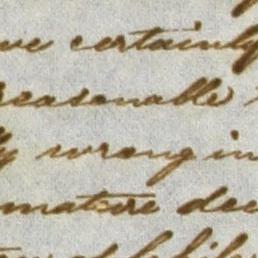 ve certainly
reasonable
y wrong in
mature dec